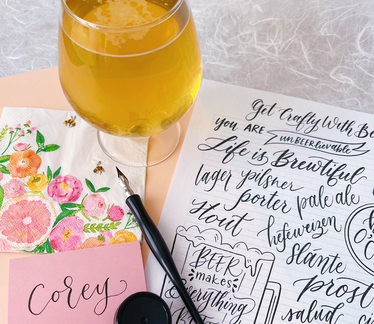 Get Crafty With Be
you ARE unBEERlievable
Life is Brewtiful
lager pilsner
porter pale ale
Stout
hefeweizen
Slánte
prost
salud
BEER
makes
everything
BETTER
Corey